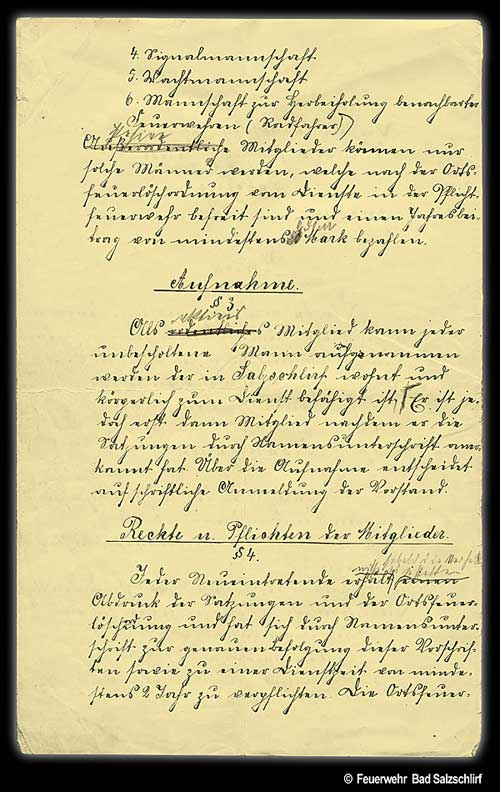 4. Signalmannschaft
5. Wachtmannschaft
6. Mannschaft zur Herbeiholung benachbarter
Feuerwehren (Radfahrer)
Passive
Außerordentliche Mitglieder können nur
solche Männer werden, welche nach der Orts-
feuerlöschordnung vom Dienste in der Pflicht-
feuerwehr befreit sind und einen Jahresbei-
trag von mindestens Mark bezahlen.
Aufnahme.
§ 3
aktives
Als ordentliches Mitglied kann jeder
unbescholtene Mann aufgenommen
werden der in Salzschlirf wohnt und
körperlich zum Dienst befähigt ist, Er ist je-
doch erst dann Mitglied nachdem er die
Satzungen durch Namensunterschrift aner-
kannt hat. Über die Aufnahme entscheidet
auf schriftliche Anmeldung der Vorstand.
Rechte u. Pflichten der Mitglieder.
§ 4.
Jeder Neueintretende erhält einen
Abdruck der Satzungen und der Ortsfeuer-
löschordnung und hat sich durch Namensunter-
schrift zur genauen Befolgung dieser Vorschrif-
ten sowie zu einer Dienstzeit von minde-
stens 2 Jahr zu verpflichten. Die Ortsfeuer-
© Feuerwehr Bad Salzschlirf